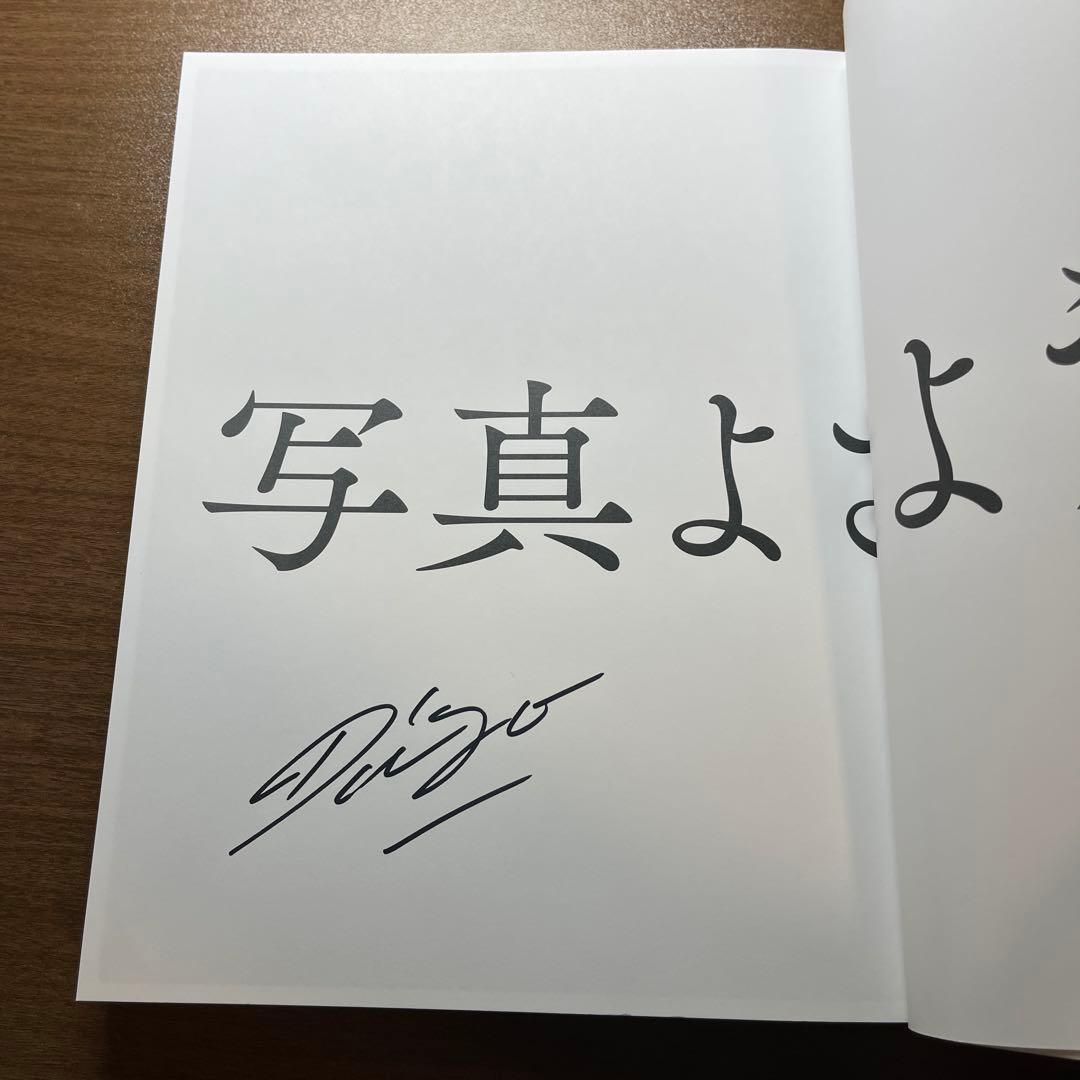 写真よさ
よ
Daigo